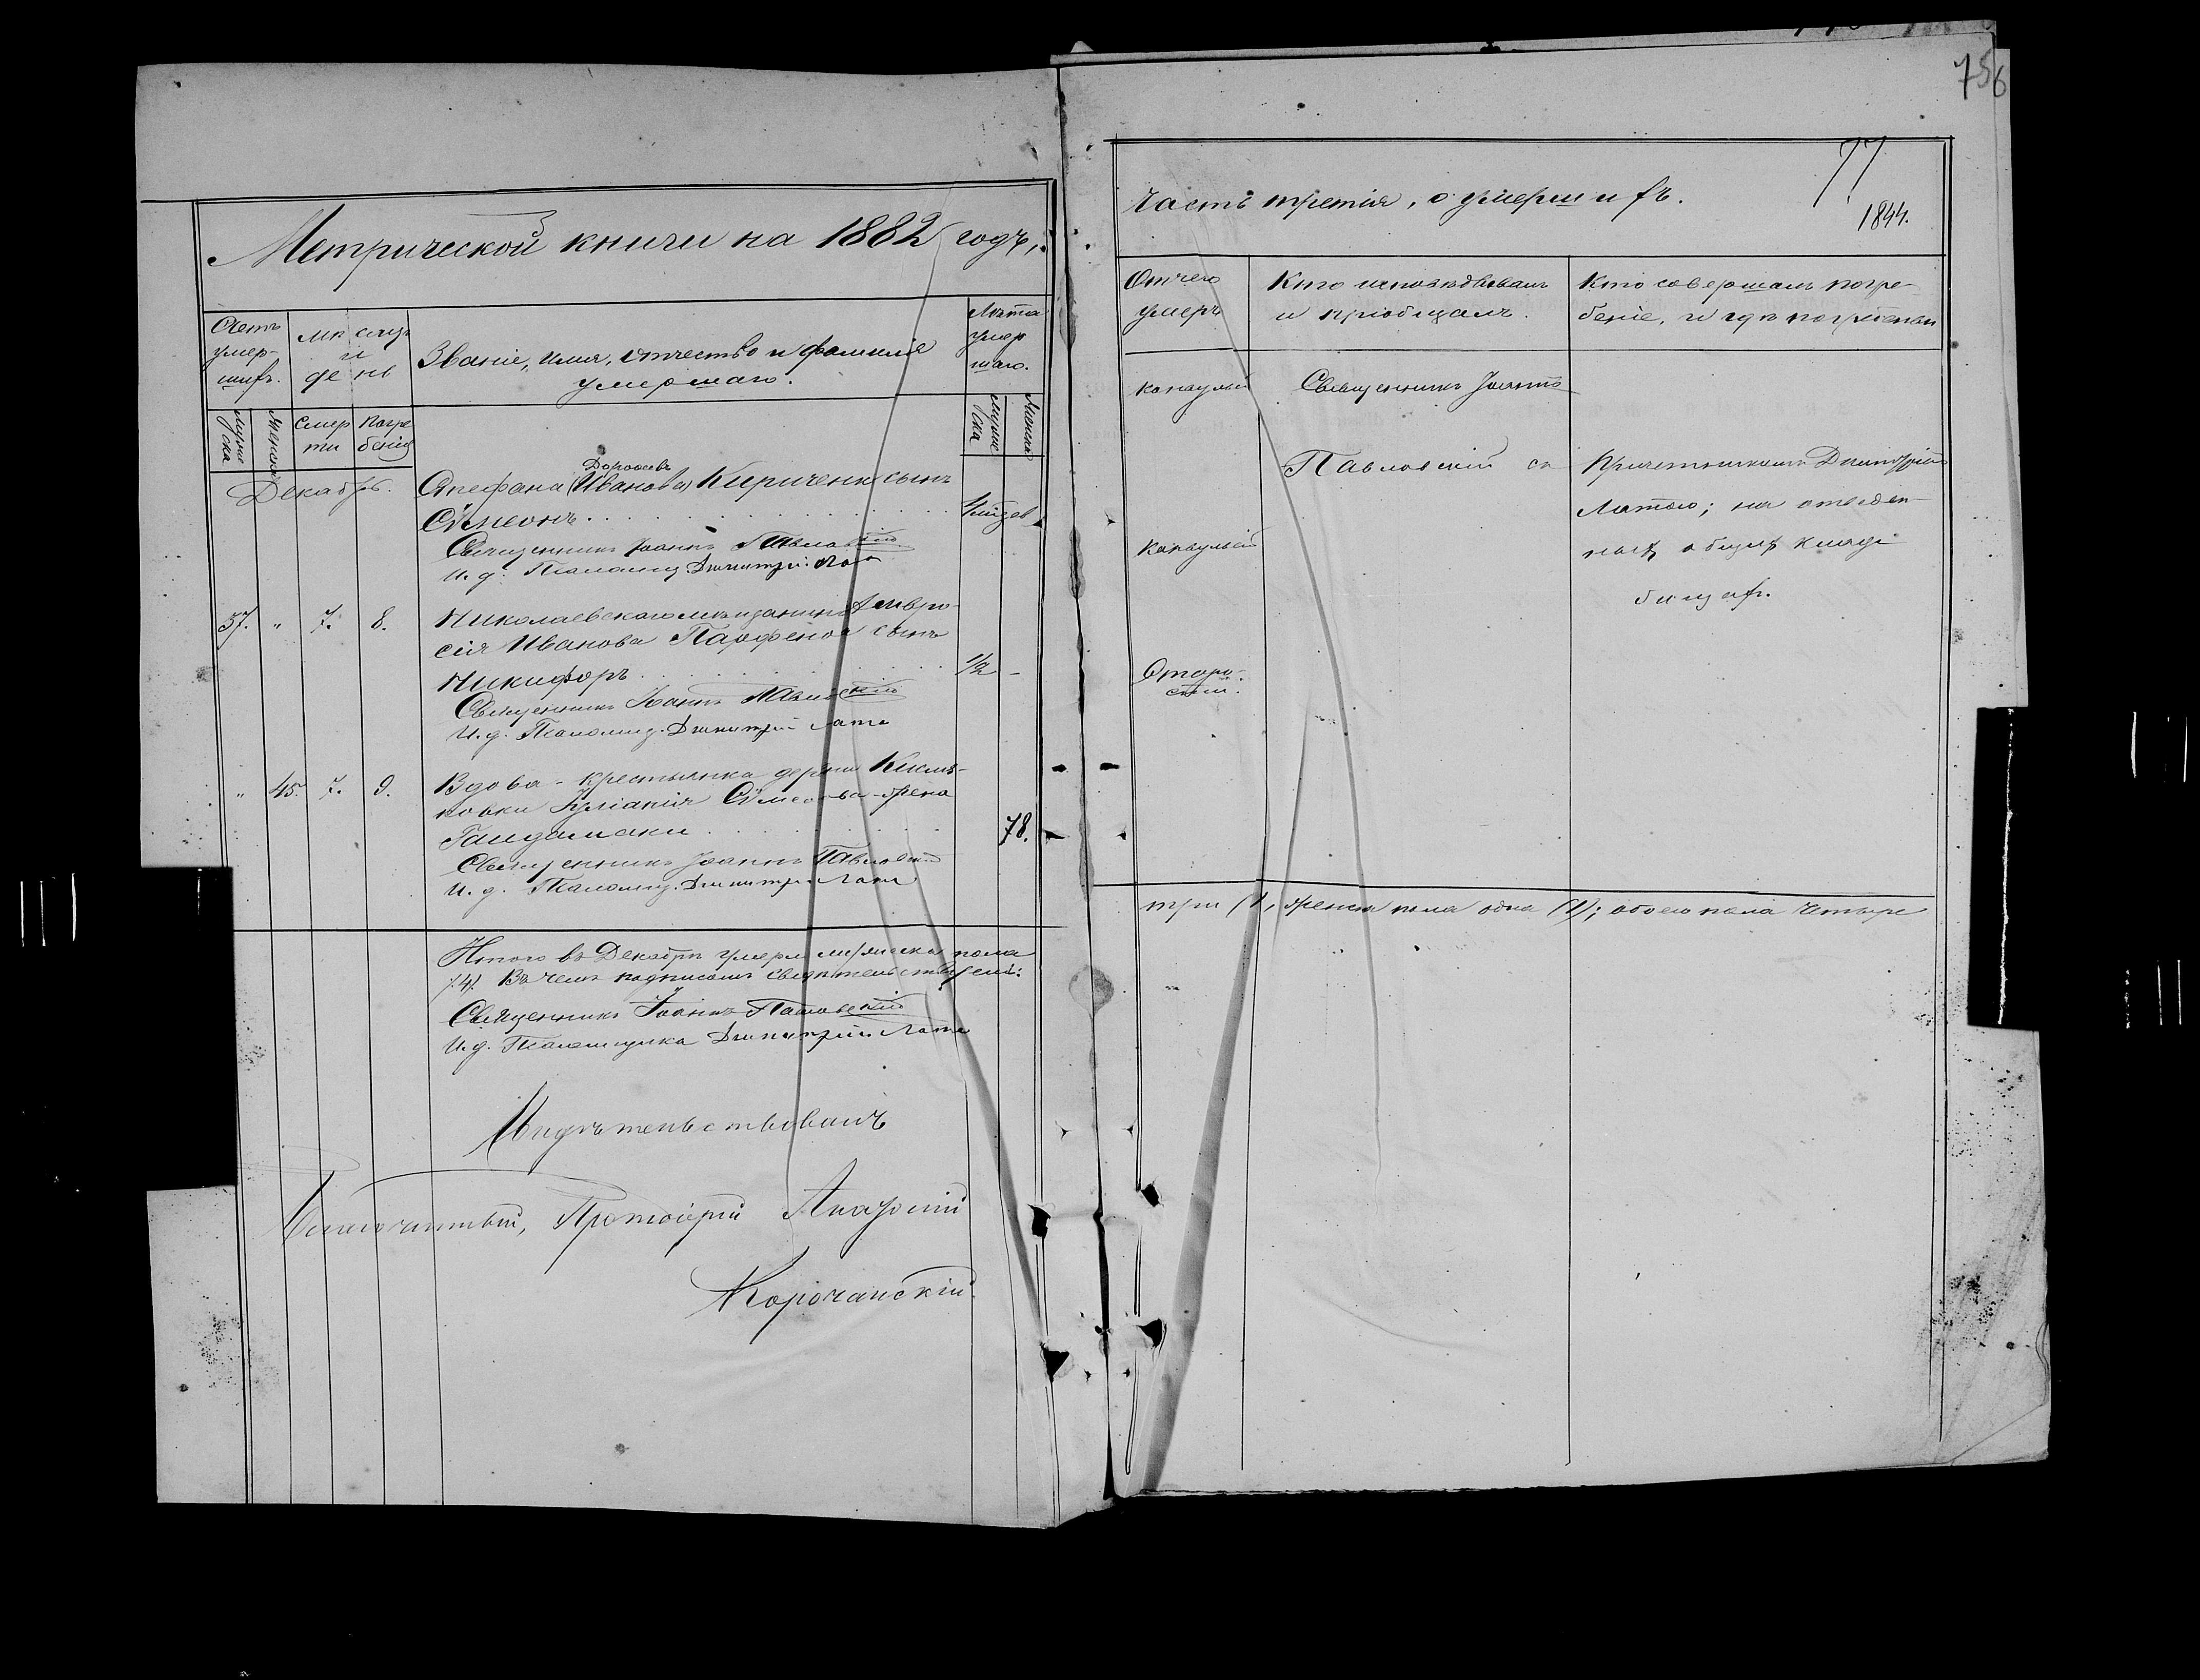 756
Метрической книги на 1882 годъ,
Счетъ умер-шихъ.
Мѣсяцъ и день
Званіе, имя, отчество и фамилія умершаго.
Лѣта умершаго.
Мужеска
Женска
Смерти
Погребенія
Мужеска
Женска
Декабрь.
Дорофѣевъ
Стефана (Иванова) Кириченк сынъ
Сѵмеонъ
Священникъ Іоаннъ Павловскій
И. д. Псаломщ. Димитрій Лата
37. " 7. 8. Николаевскаго мѣщанина Амвро-
сія Иванова Парфенова сынъ
Никифоръ 1/2 -
Священникъ Іоаннъ Павловскій
И. д. Псаломщ. Димитрій Лата
" 45. 7. 9. Вдова - крестьянка дерни
Іуліанія Сѵмеонова - Ѳрена
Гайдамаки 78.
Священникъ Іоаннъ Павловскій
И. д. Псаломщ. Димитрій Лата
Итого въ Декабрѣ умерло мужеска пола
/4/. Въ чемъ подписомъ свидѣтельствуемъ:
Священникъ Іоаннъ Павловскій
И. д. Псаломщика Димитрій Лата
Свидѣтельствовалъ
Благочинный, Протоіерей
Корочанскій.
часть третія, о умершихъ.
77
1844.
Отчего умеръ
Кто исповѣдывалъ и пріобщалъ.
Кто совершалъ погре-
беніе, и гдѣ погребены
Священникъ Іоаннъ
Павловскій съ Причетникомъ Димитріемъ
Латою; на отведен-
ныхъ общихъ клад-
бищахъ.
Отъ
старости.
три женска пола одна (1); обоего пола четыре